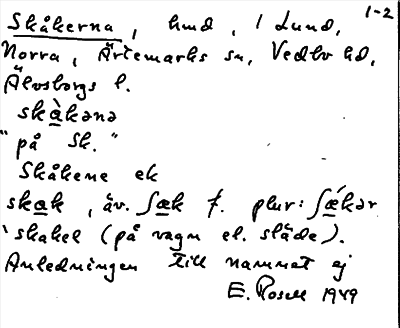 1-2
Skåkerna, hmd, i Lund,
Norra, Ärtemarks sn, Vedbo hd,
Älvsborgs l.
skàkənə
"på Sk."
Skåkene ek
skak, äv. ʃæk f. plur: ʃǽkər
'skakel (på vagn el. släde).
Anledningen till namnet ej
E. Rosell 1949